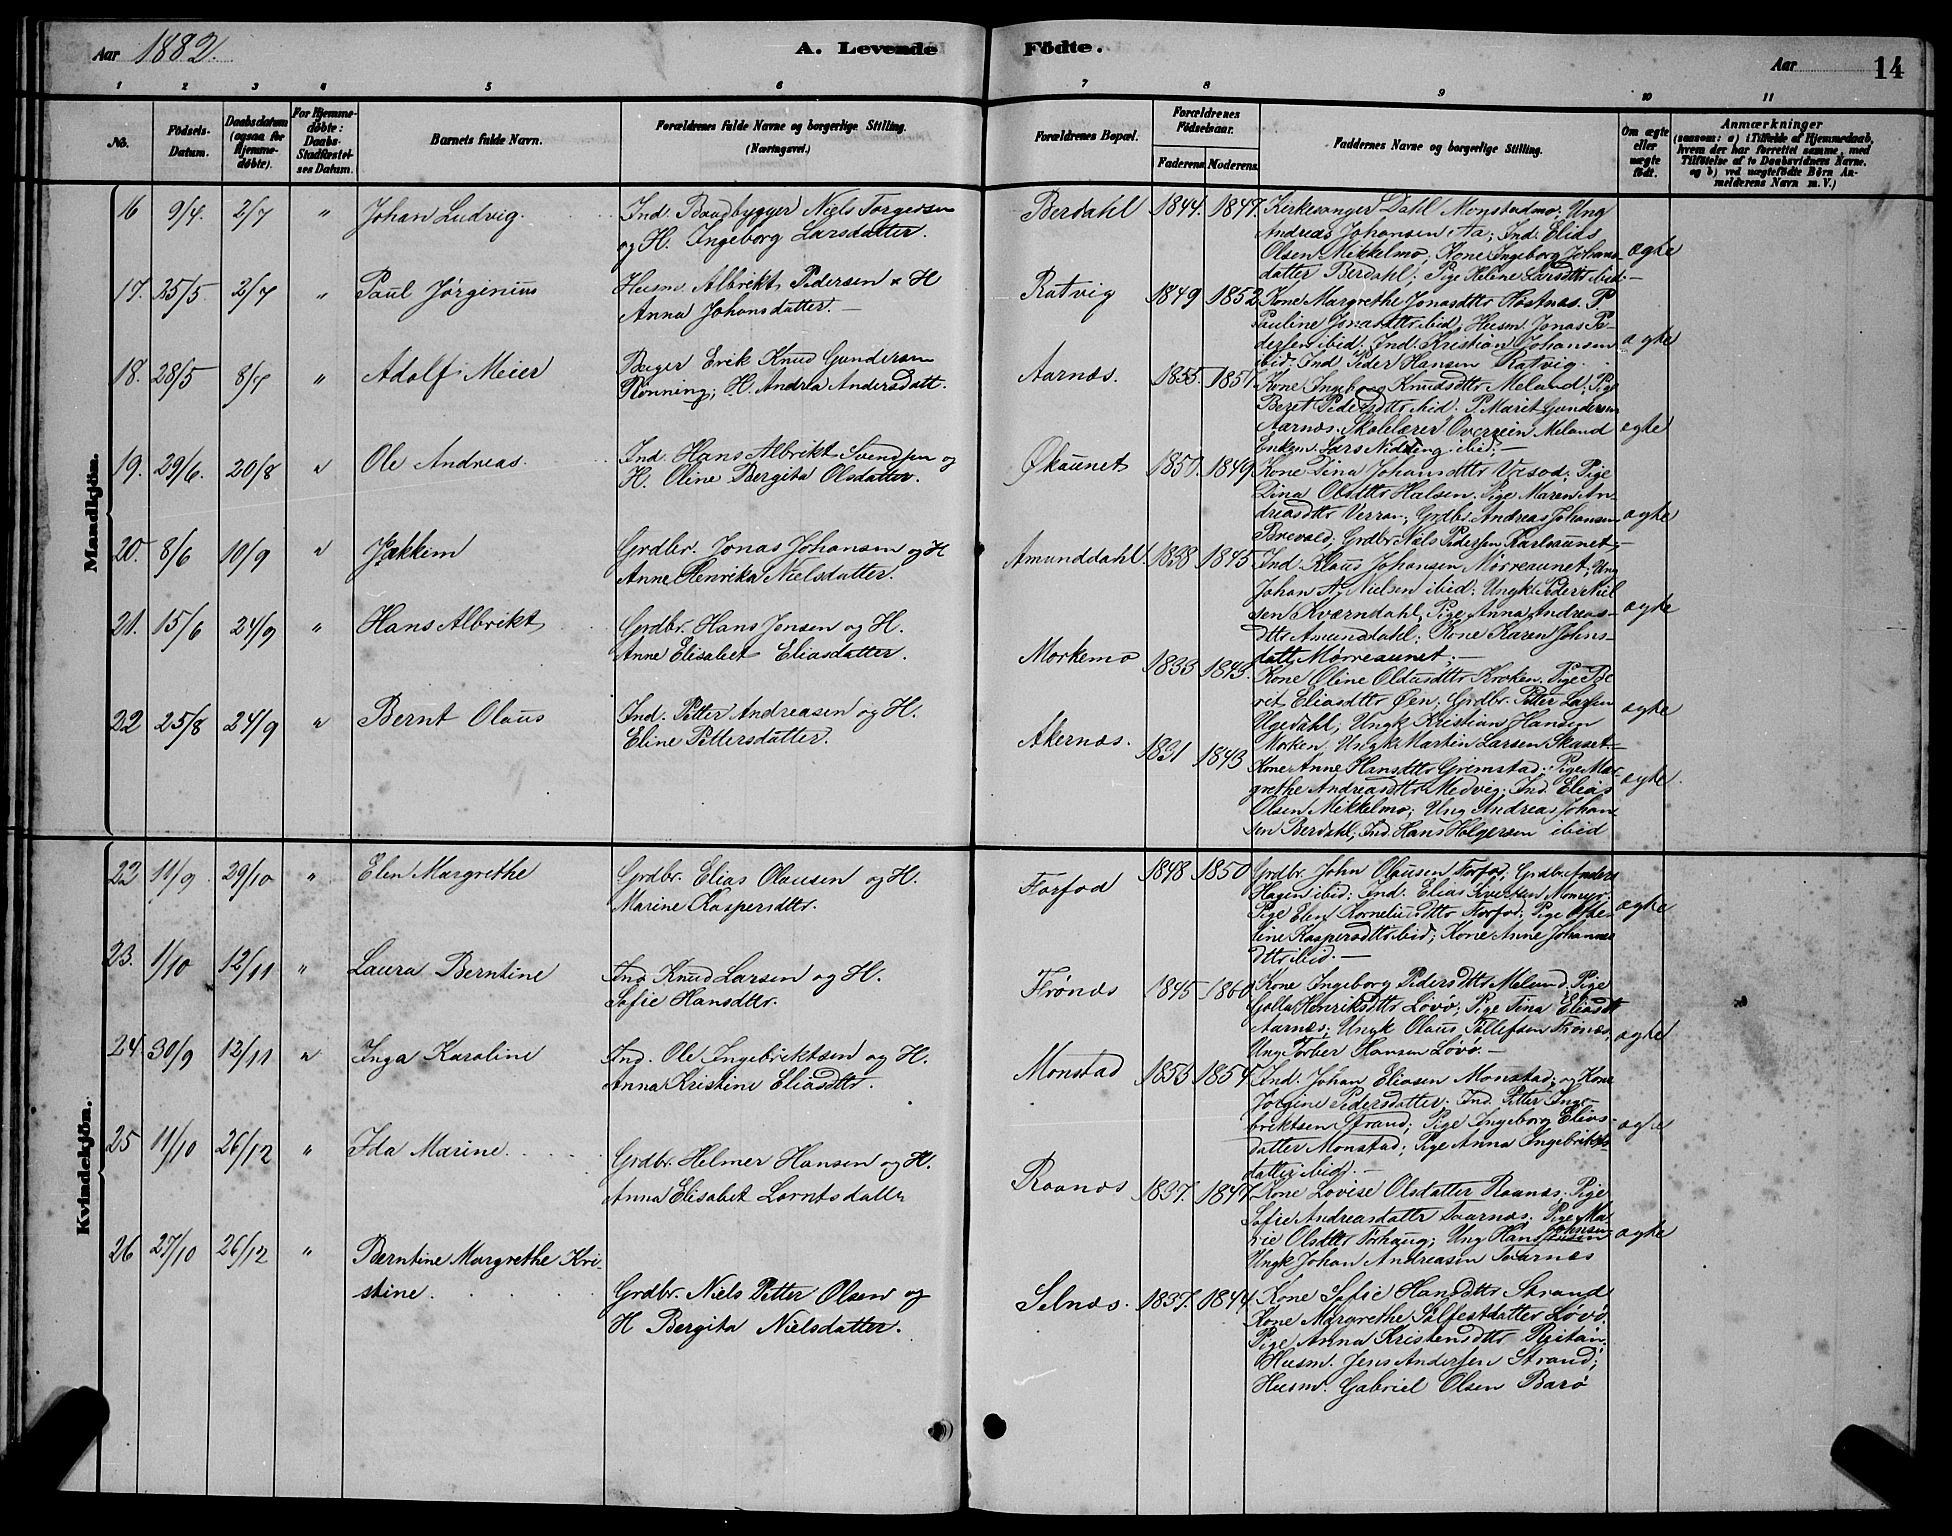 Aar 1882.
A. Levende
1 2 3 4 5 6
No.
Fødsels-Datum.
Daabsdatum (ogsaa for Hjemmedøbte).
For Hjemmedøbte: Daabs-Stadfæstelses Datum.
Barnets fulde Navn.
Forældrenes fulde Navne og borgerlige Stilling.
(Næringsvei.)
Mandkjøn.
16 9/4 2/7 " Johan Ludvig. Ind. Baadbygger Niels Torgersen
og H. Ingeborg Larsdatter.
17. 25/5 2/7 " Paul Jørginius Husm. Albrikt Pedersen & H
Anna Johansdatter. —
18. 28/5 8/7 " Adolf Meier Bager Erik Knud Gundersen
Rønning; H. Andrea Andersdatt.
19. 29/6. 20/8 " Ole Andreas. Ind. Hans Albrikt Svendsen og
H. Oline Bergita Olsdatter.
20. 8/6 10/9 " Jakkim Grdbr. Jonas Johansen og H
Anne Henrika Nielsdatter.
21. 15/6 24/9 " Hans Albrikt Grdbr. Hans Jonsen og H.
Anne Elisabet Eliasdatter.
22 25/8 24/9 " Bernt Olaus Ind. Petter Andreasen og H.
Eline Pettersdatter.
Kvindekjøn.
22 11/9 29/10 " Elen Margrethe Grdbr. Elias Olausen og H.
Marine Kaspersdttr.
23. 1/10 12/11 " Laura Berntine Ind Knud Larsen og H.
Sofie Hansdttr.
24. 30/9 12/11 " Inga Karoline Ind. Ole Ingebriktsen og H.
Anna Kristine Eliasdttr.
25 11/10 26/12 " Ida Marine. Grdbr. Helmer Hansen og H.
Anna Elisabet Lorntsdatter
26 27/10 26/12 " Berntine Margrethe Kri-
stine. Grdbr. Niels Petter Olsen og
H Bergita Nielsdatter.
Fødte.
Aar 14
7 8 9 10 11
Forældrenes Bopæl.
Forældrenes Fødselsaar.
Faderens Moderens
Faddernes Navne og borgerlige Stilling.
Om ægte eller uægte født.
Anmærkninger
(saasom: a) i Tilfælde af Hjemmedaab, hvem der har forrettet samme, med Tilføielse af to Daabsvidners Navne, og b) ved uægtefødte Børn Anmelderens Navn m. V.)
Berdahl 1844. 1847. Kirkesanger Dahl Monstadmo; Ung
Andreas Johansen Aa; Ind. Elias
Olsen Mikkelmo, Kone Ingeborg Johans-
datter Berdahl; Pige Helene Larsdttr ibid — ægte
Ratvig 1849 1852 Kone Margrethe Jonasdttr Høstnæs. P
Pauline Jonasdttr ibid, Husm. Jonas Pe-
dersen ibid. Ind. Kristian Johansen
ibid. Ind. Peder Hansen Ratvig. ægte
Aarnæs. 1855. 1851 Kone Ingeborg Knudsdttr Meland; Pige
Beret Pedersdttr ibid. P. Marit Gundersen
Aarnæs. Skolelærer Overrein Meland
Enkem. Lars Nidding ibid. — ægte
Økaunet 1850. 1849 Kone Dina Johansdttr Væsod; Pige
Dina Olsdttr Halsen. Pige Maren An-
dreasdttr Verran; Grdbr. Andreas Johansen
Brevold; Grdbr Niels Pedersen Karlsaunet; — ægte
Amunddahl. 1838 1845 Ind. Klaus Johansen Mørreaunet; Ung
Johan A. Nielsen ibid; Ungk Peder Niel-
sen Kværndahl; Pige Anna Andreas-
dttr Amunddahl; Kone Karen Johns-
datt Mørreaunet; — ægte
Morkemo 1833 1843. Kone Oline Olausdttr Kroken. Pige Be-
ret Eliasdttr Øen; Grdbr. Petter Larsen
Ugedahl; Ungk Kristian Hansen
Morken; Ungk Martin Larsen Skaset — ægte
Akernæs. 1831 1843 Kone Anne Hansdttr Grimstad; Pige Mar-
grethe Andreasdttr Medvig. Ind. Elias
Olsen Mikkelmo; Ung Andreas Johan-
sen Berdahl; Ind. Hans Holgersen ibid ægte.
Forfod 1848 1850 Grdbr. John Olausen Forfod; Grdbr. Anders
Hagen ibid; Ind. Elias Sivertsen Momyr;
Pige Elen Korneliusdttr Forfod; Pige
line Kaspersdttr ibid; Kone Anne Johannes-
dttr ibid. — ægte
Frønæs 1845 1860 Kone Ingeborg Pedersdttr Meland, Pige
Golla Henriksdttr Løvø; Pige Tina Eliasdt
Aarnæs; Ungk Olaus Tollefsen Frønæs;
Ung Torber Hansen Løvø. — ægte
Monstad 1853 1854 Ind. Johan Eliasen Monstad; og Kone
Jørgine Pedersdatter. Ind. Petter Inge-
briktsen Strand; Pige Ingeborg Elias-
datter Monstad; Pige Anna Ingebrikts-
datter ibid. — ægte
Raanæs 1837. 1847. Kone Lovise Olsdatter Raanæs. Pige
Sofie Andreasdattr Taarnæs. Pige Ma-
rie Olsdttr Torhaug; Ung Hans Johnsen
Ungk Johan Andreasen Taarnæs ægte
Selnæs. 1837. 1844 Kone Sofie Hansdttr Strand
Kone Margrethe Solfestdatter Løvø.
Pige Anna Kristensdttr Reitan.
Husm. Jens Andersen Strand;
Husm. Gabriel Olsen Barø